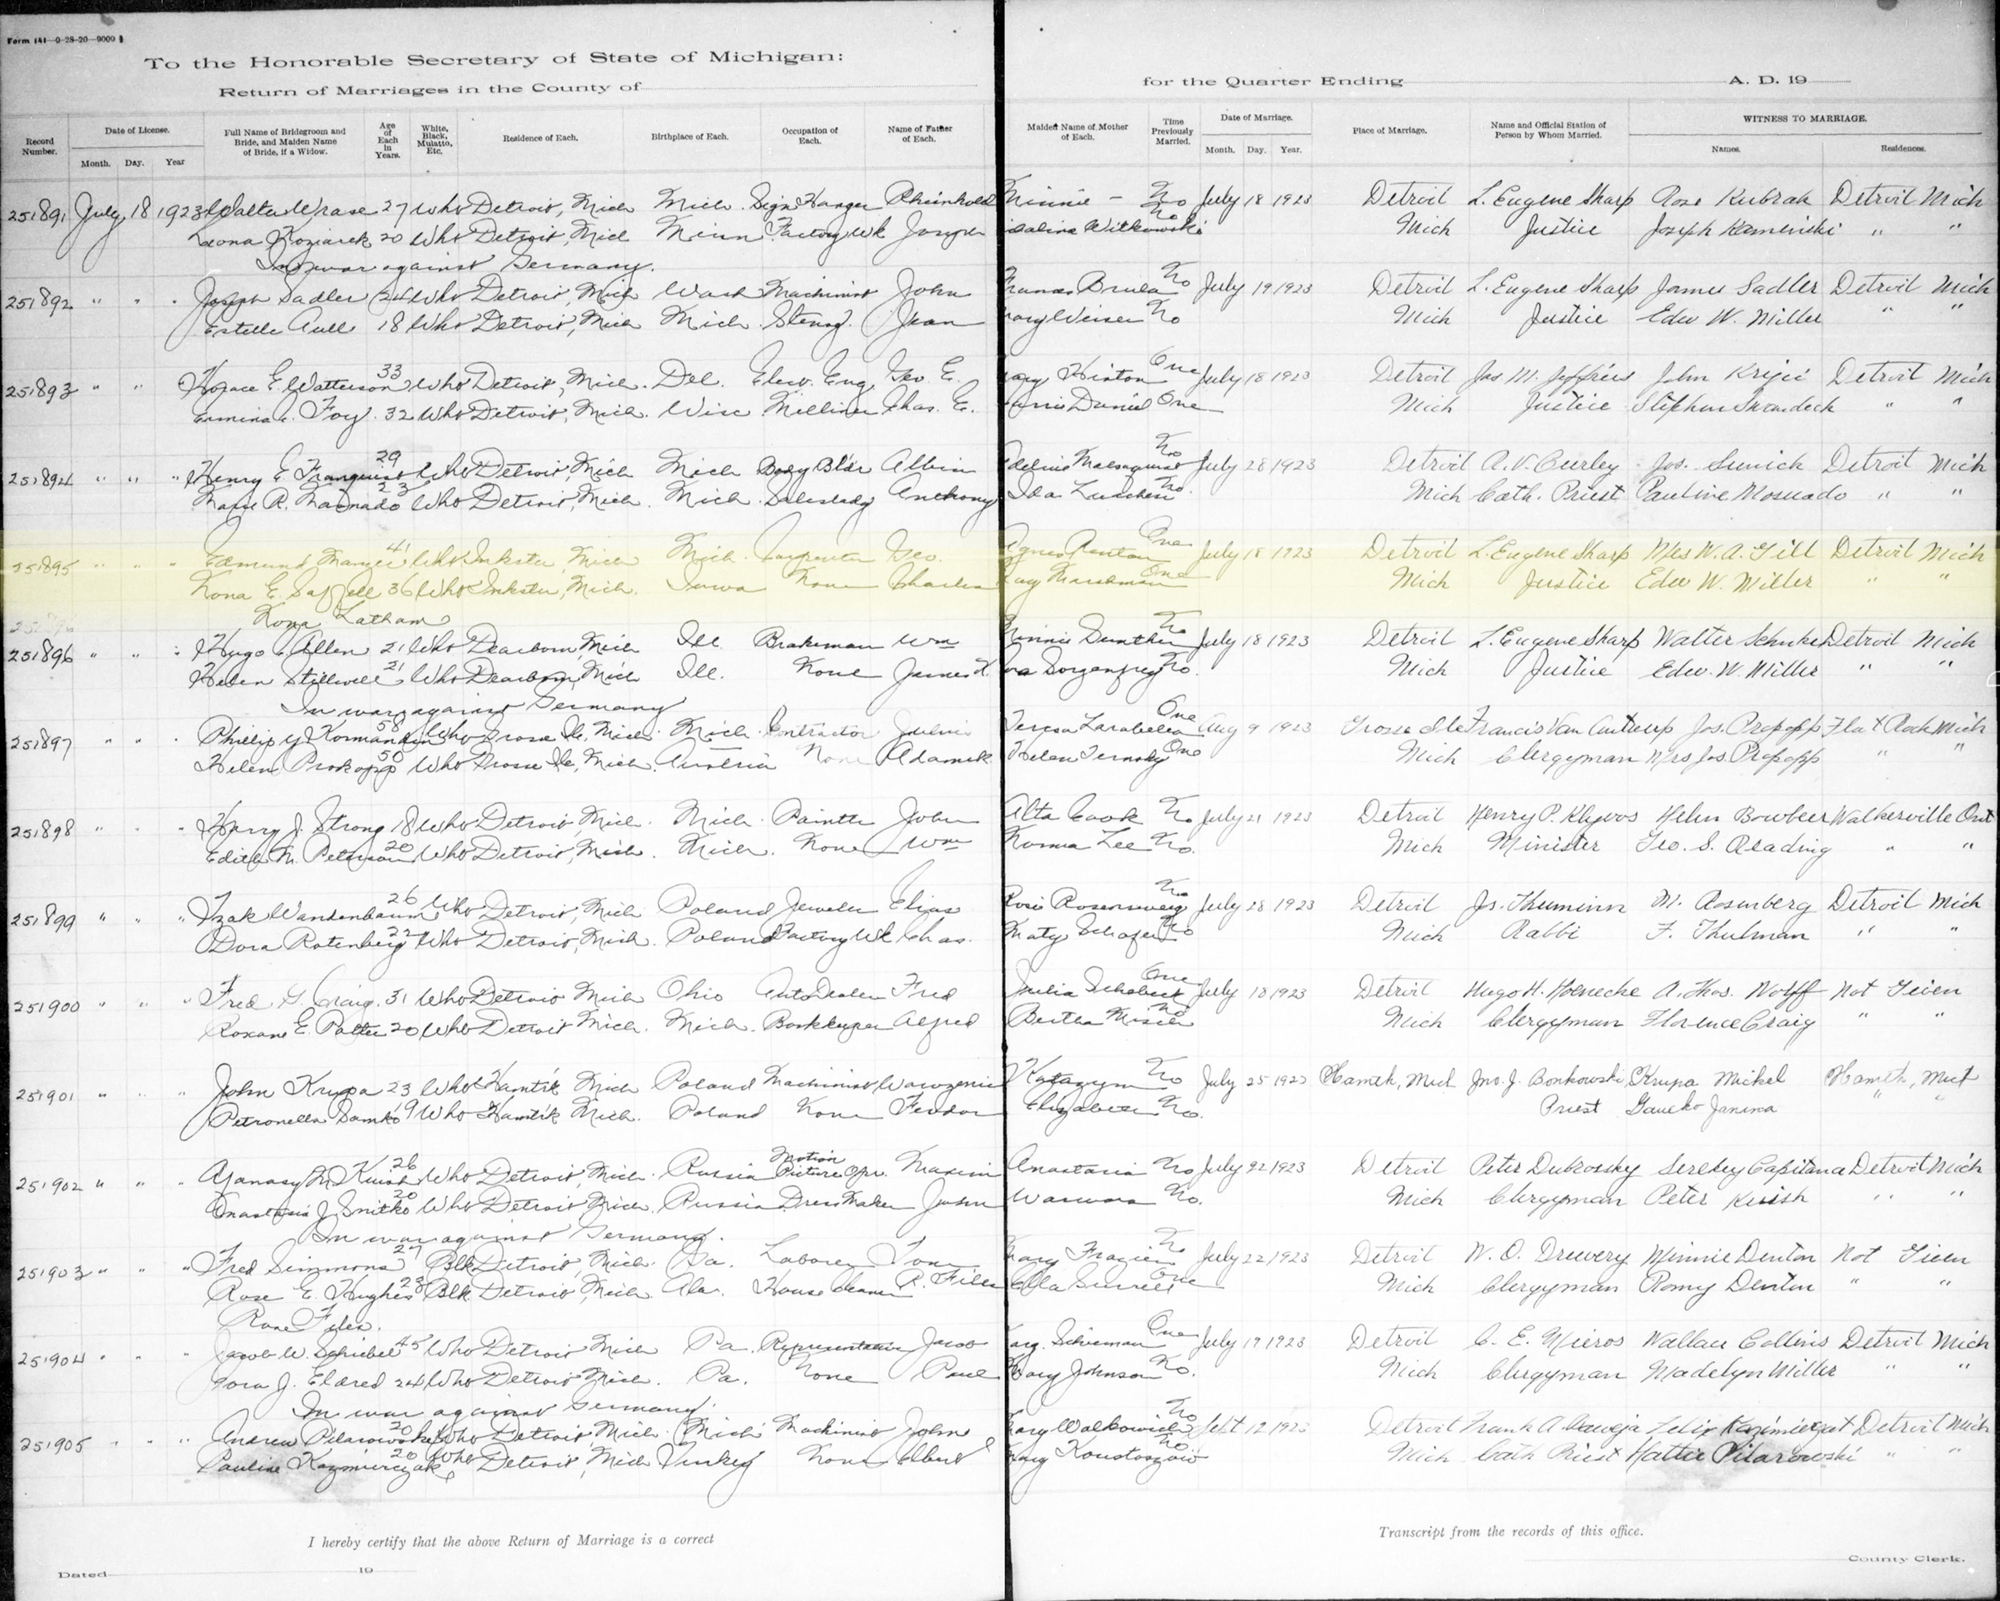 Form 141—9-28-20—9000
To the Honorable Secretary of State of Michigan:
Return of Marriages in the County of
for the Quarter Ending A. D. 19
Record Number. Date of License. Month. Day. Year Full Name of Bridegroom and Bride, and Maiden Name of Bride, if a Widow. Age of Each in Years. White, Black, Mulatto, Etc. Residence of Each. Birthplace of Each. Occupation of Each. Name of Father of Each. Maiden Name of Mother of Each. Time Previously Married. Date of Marriage. Month. Day. Year. Place of Marriage. Name and Official Station of Person by Whom Married. WITNESS TO MARRIAGE. Names. Residences.
251891 July 18 1923 Walter Wrase 27 Wh Detroit, Mich Mich. Sign Hanger Rheinhold Minnie — No July 18 1923 Detroit L. Eugene Sharp Rose Kubrak Detroit Mich
Leona Koziarek 20 Wh Detroit, Mich Minn Factory Wk Joseph Witkowski No Mich Justice Joseph Kaminski " "
In war against Germany.
251892 " " " Joseph Sadler 24 Wh Detroit, Mich Wash Machinist John Frances No July 19 1923 Detroit L. Eugene Sharp James Sadler Detroit Mich
Estelle Aull 18 Wh Detroit, Mich Mich. Stenog. Jean Mary Weiser No Mich Justice Edw W. Miller " "
251893 " " " Horace E. Watterson 33 Wh Detroit, Mich. Del. Elec. Eng. Geo E. Mary Hinton One July 18 1923 Detroit Jas M. Jeffries John Krijci Detroit Mich
Foy 32 Wh Detroit, Mich. Wisc Milliner Chas. E. Daniel One Mich Justice Stephen " "
251894 " " " Henry E. Franquist 29 Wh Detroit, Mich Mich Body Bldr Albin No July 28 1923 Detroit A. V. Curley Jos. Sunich Detroit Mich
Marie R. 23 Wh Detroit, Mich. Mich. Saleslady Anthony Ida No. Mich Cath. Priest Pauline Mosuado " "
251895 " " " Edmund 41 Wh Inkster, Mich Mich. Carpenter Geo. Agnes One July 18 1923 Detroit L. Eugene Sharp Mrs W. A. Gill Detroit Mich
Nona E. Saffell 36 Wh Inkster, Mich. Iowa None Charles Marshman One Mich Justice Edw W. Miller " "
Nona Latham
251896 " " " Hugo Allen 21 Wh Dearborn, Mich Ill. Brakeman Wm Minnie No July 18 1923 Detroit L. Eugene Sharp Walter Detroit Mich
Helen Stillwell 21 Wh Dearborn, Mich Ill. None James No. Mich Justice Edw. W. Miller " "
In war against Germany
251897 " " " Phillip 58 Wh Grosse Ile, Mich. Mich. Contractor Julius Teresa One Aug 9 1923 Grosse Ile Francis Van Antwerp Jos. Propopp Flat Rock Mich
Helen Prokopp 50 Wh Grosse Ile, Mich. Austria None Adamek Helen One Mich Clergyman Mrs Jos. Propopp " "
251898 " " " Harry J. Strong 18 Wh Detroit, Mich. Mich. Painter John Alta Cook No July 21 1923 Detroit Henry P. Helen Bowbeer Walkerville Ont
Edith M. Peterson 20 Wh Detroit, Mich. Mich. None Wm Norma Lee No. Mich Minister Geo. S. Reading " "
251899 " " " Izak Wandenbaum 26 Wh Detroit, Mich Poland Jeweler Elias No July 28 1923 Detroit Js. Thumin M. Rosenberg Detroit Mich
Dora Rotenberg 22 Wh Detroit, Mich. Poland Factory Wk Chas. Katy No Mich Rabbi F. Thulman " "
251900 " " " Fred G. Craig 31 Wh Detroit Mich Ohio Auto Dealer Fred Julia One July 18 1923 Detroit Hugo H. Hoenecke A. Thos. Wolff Not Given
Roxane E. Potter 20 Wh Detroit Mich. Mich. Bookkeeper Alfred Bertha No Mich Clergyman Florence Craig " "
251901 " " " John Krupa 23 Wh Hamtk Mich Poland Machinist Katazyna No July 25 1923 Hamtk, Mich Jno. J. Bonkowski, Krupa Michel Hamtk, Mich
Petronella Samko 19 Wh Hamtk Mich. Poland None Feodor Elizabeth No. Priest Janina " "
251902 " " " Afanasy 26 Wh Detroit, Mich. Russia Motion Picture Opr. Maxim Anastasia No July 22 1923 Detroit Peter Capitana Detroit Mich
Anastasia J. Snitko 20 Wh Detroit, Mich. Russia Dress Maker John No. Mich Clergyman Peter " "
In war against Germany.
251903 " " " Fred Simmons 27 Blk Detroit, Mich. Ga. Laborer Tom Mary Frazier No July 22 1923 Detroit W. O. Drewery Minnie Denton Not Given
Rose E. Hughes 23 Blk. Detroit, Mich. Ala. House cleaner R. Files Ella One Mich Clergyman Romy Denton " "
Rose Files.
251904 " " " Jacob W. 45 Wh Detroit Mich Pa. Representative Jacob Silverman One July 19 1923 Detroit C. E. Mieros Wallace Collins Detroit Mich
J. Eldred 24 Wh Detroit Mich. Pa. None Paul Mary Johnson No. Mich Clergyman Madelyn Miller " "
In war against Germany
251905 " " " Andrew 20 Wh Detroit, Mich. Mich Machinist John Mary Walkowich No Sept 12 1923 Detroit Frank A. Felix Detroit Mich
Pauline Kazmierczak 20 Wh Detroit, Mich Turkey None Albert Mary No Mich Cath Priest Hattie Pilarowski " "
I hereby certify that the above Return of Marriage is a correct Transcript from the records of this office.
Dated 19 County Clerk.